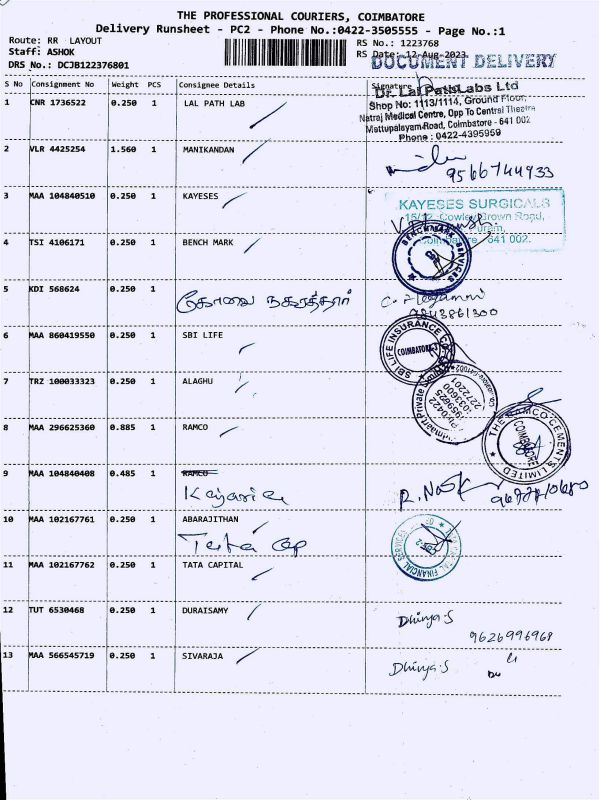 THE PROFESSIONAL COURIERS, COIMBATORE
Delivery Runsheet - PC2 - Phone No.:0422-3505555 - Page No.:1
Route: RR LAYOUT
Staff: ASHOK
DRS No.: DCJB122376801
RS No.: 1223768
RS Date: 12-Aug-2023
DOCUMENT DELIVERY
S No Consignment No Weight PCS Consignee Details Signature
Dr. Lal PathLabs Ltd
Shop No: 1113/1114, Ground Floor,
Natraj Medical Centre, Opp To Central Theatre
Mettupalayam Road, Coimbatore - 641 002
Phone : 0422-4395959
1 CNR 1736522 0.250 1 LAL PATH LAB
2 VLR 4425254 1.560 1 MANIKANDAN
9566744933
3 MAA 104840510 0.250 1 KAYESES
KAYESES SURGICALS
15/12, Cowley Brown Road,
641 002.
4 TSI 4106171 0.250 1 BENCH MARK
BENCHMARK SERVICES
5 KDI 568624 0.250 1 கோவை நகரத்தார்
9843861300
6 MAA 860419550 0.250 1 SBI LIFE
SBI LIFE INSURANCE CO
COIMBATORE
7 TRZ 100033323 0.250 1 ALAGHU
8 MAA 296625360 0.885 1 RAMCO
THE RAMCO CEMENTS LIMITED
COIMBATORE
9 MAA 104840408 0.485 1 RAMCO
Kajaria
10 MAA 102167761 0.250 1 ABARAJITHAN
Tata Cap
FINANCIAL SERVICES
11 MAA 102167762 0.250 1 TATA CAPITAL
12 TUT 6530468 0.250 1 DURAISAMY
Dhivya.S
9626996968
13 MAA 566545719 0.250 1 SIVARAJA
Dhivya.S